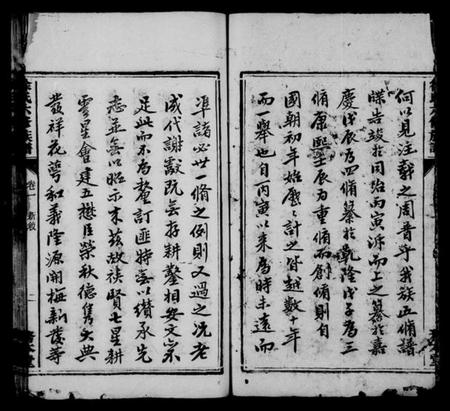 何以見注載之周普乎我族五脩譜
牒告竣於同治丙寅泝而上之纂於嘉
慶戊辰為四脩纂於乾隆戊子為三
脩康熙壬辰為重脩而創脩則自
國朝初年始歷歷計之皆越數十年
而一舉也自丙寅以來為時未遠而
準諸必世一脩之例則又過之況老
成代謝獻既無存耕鑿相安文
足此而不為釐訂匪特無以纘承先
志並無以昭示來茲故族賢七星耕
雲星會建五懋臣榮秋德雋文典
發祥花萼和義隆源開梅新茂等
卷一
新敘
二